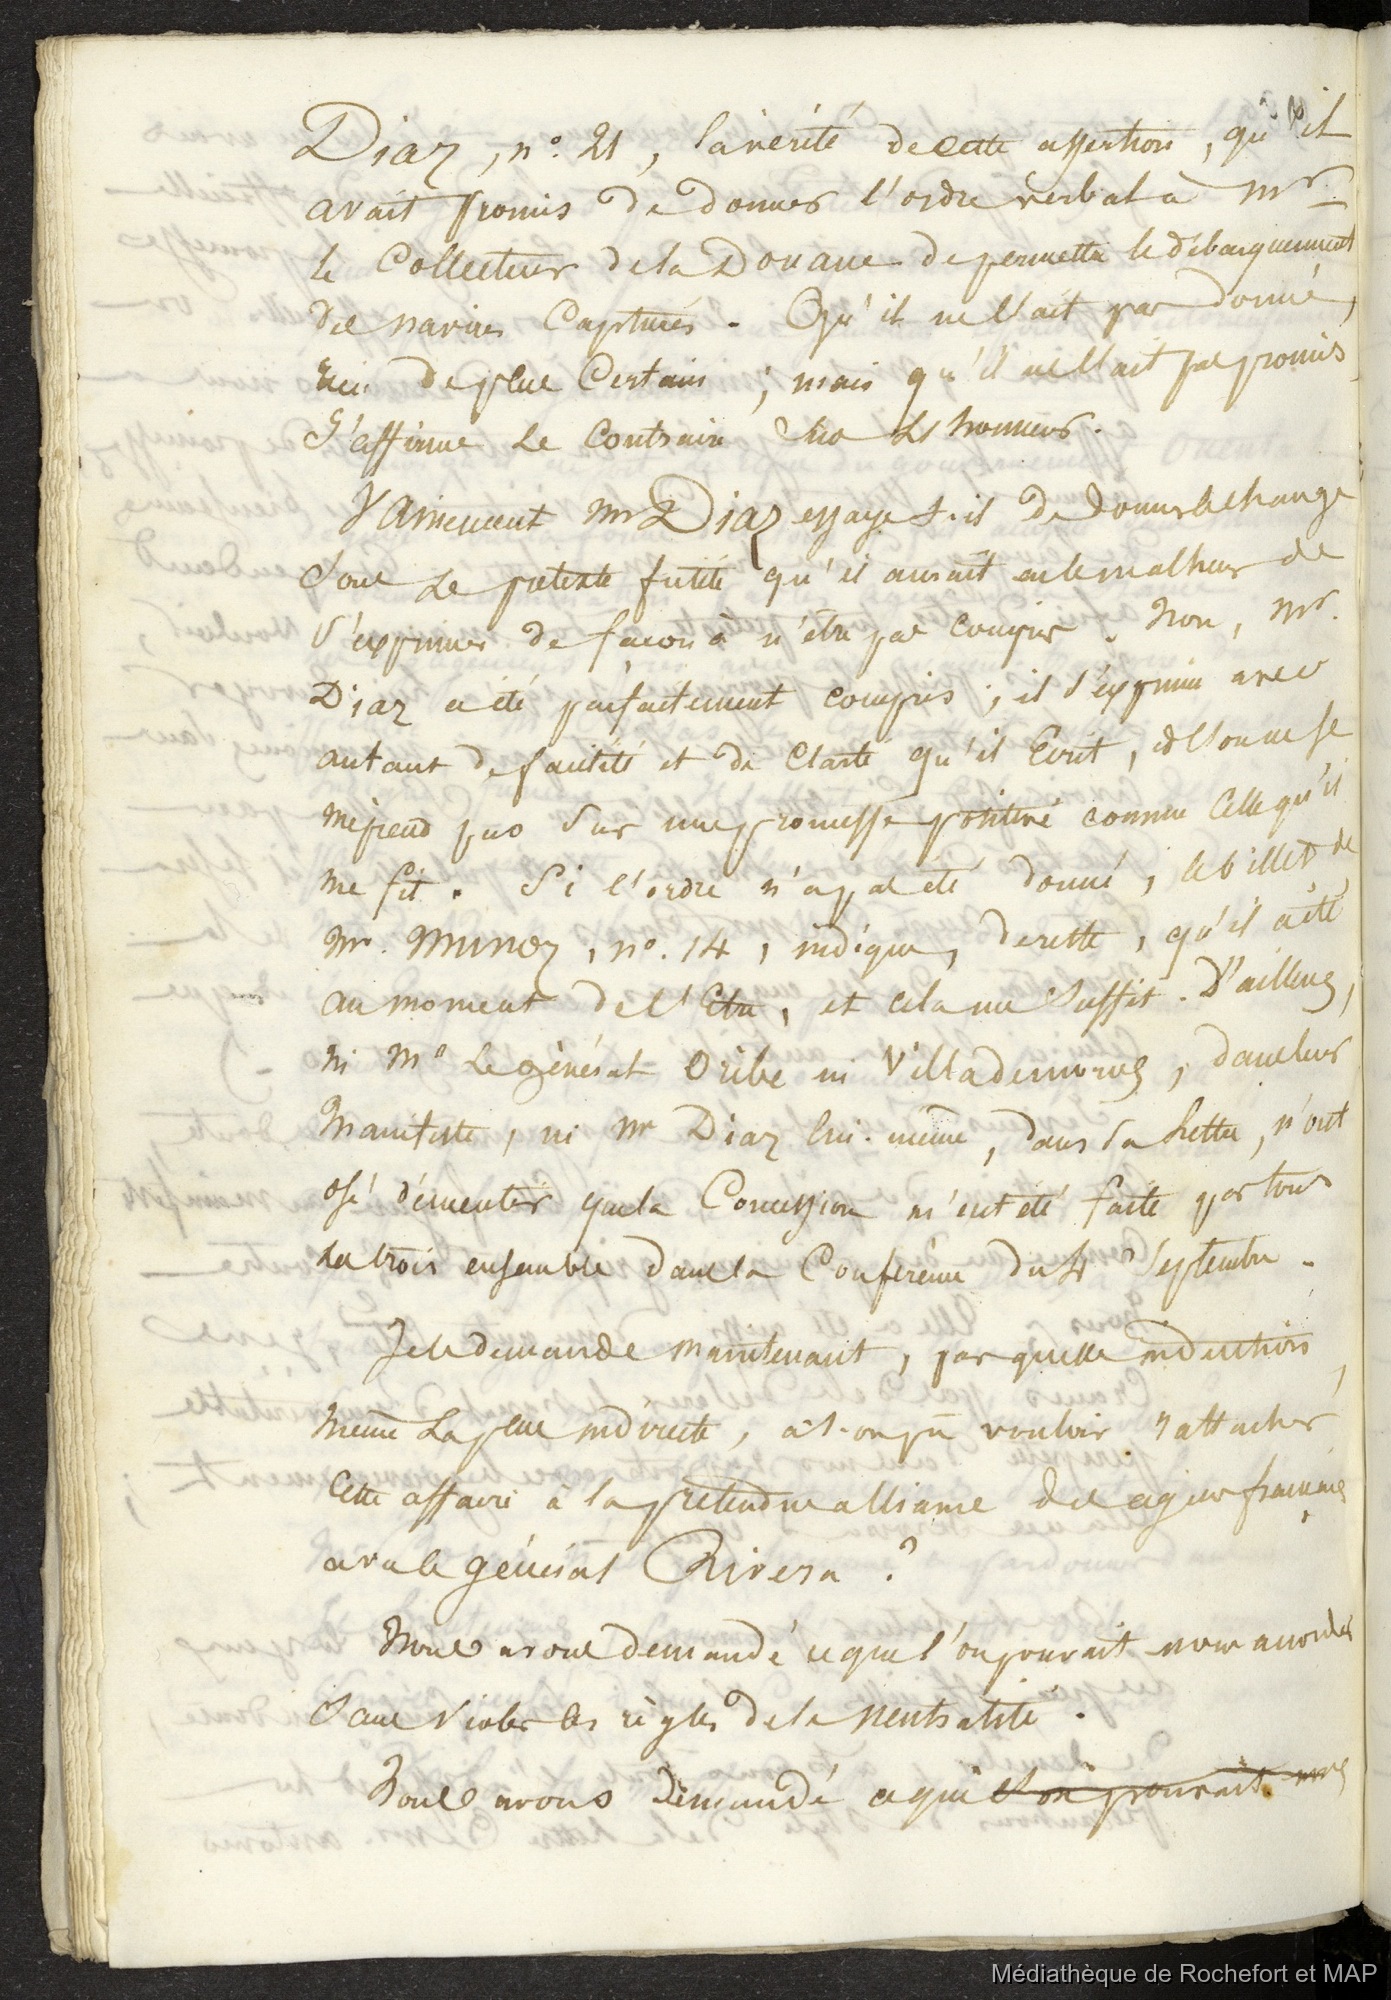 Diaz, n°. 21, la vérité de cette assertion, qu'il
avait promis de donner l'ordre verbal à Mr.
le Collecteur de la Douane de permettre le débarquement
des navires Capturés. Qu'il ne l'ait pas donné,
rien de plus Certain ; mais qu'il ne l'ait pas promis
J'affirme le Contraire sur l'honneur.
Vainement Mr Diaz essaye t-il de donner le change
sous le prétexte futile qu'il aurait eu le malheur de
s'exprimer de façon à n'être pas compris. Non, Mr.
Diaz a été parfaitement compris ; il s'exprime avec
autant de facilité et de Clarté qu'il Ecrit, et l'on ne se
méprend pas sur une promesse positive comme Celle qu'il
me fit. Si l'ordre n'a pas été donné, le billet de
Mr. Munoz, n°. 14, indique, de reste, qu'il a été
au moment de l'Etre, et cela me suffit. D'ailleurs,
ni Mr Le général Oribe ni Villademoros, dans leur
Manifeste, ni Mr Diaz lui-même, dans sa Lettre, n'ont
osé démentir que la Concession m'eut été faite par tous
les trois ensemble dans la Conférence du 4 Septembre.
Je le demande maintenant, par quelle induction,
même la plus indirecte, a-t-on pu vouloir rattacher
Cette affaire à la prétendue alliance des agens français
avec le général Rivera ?
Nous avons demandé ce que l'on pouvait nous accorder
sans violer les règles de la neutralité.
Nous avons demandé ce que l'on pouvait nous
Médiathèque de Rochefort et MAP